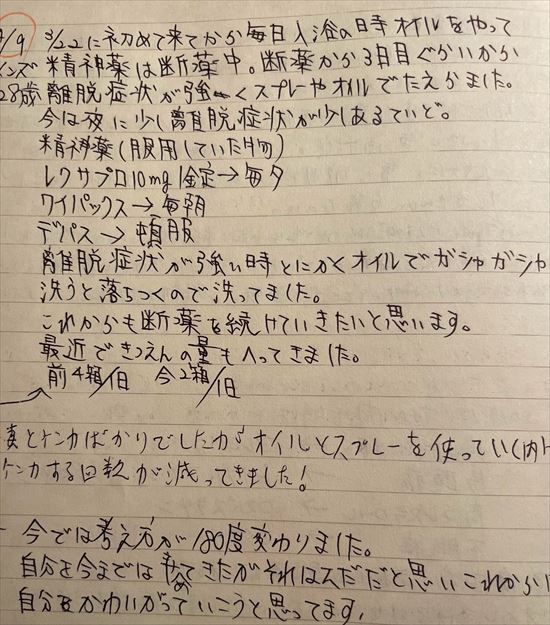 /9 3/22に初めて来てから毎日入浴の時オイルをやって
インズ 精神薬は断薬中。断薬から3日目ぐらいから
28歳 離脱症状が強くスプレーやオイルでたえました。
今は夜に少し離脱症状が少しあるていど。
精神薬(服用していた物)
レクサプロ10mg 1錠→毎夕
ワイパックス→毎朝
デパス→頓服
離脱症状が強い時とにかくオイルでガシャガシャ
洗うと落ちつくので洗ってました。
これからも断薬を続けていきたいと思います。
最近できつえんの量もへってきました。
前4箱/1日 今2箱/1日
とケンカばかりでしたがオイルとスプレーを使っていく内に
ケンカする回数が減ってきました!
今では考え方が180度変わりました。
自分を今までは てきたがそれはムダだと思いこれからは
自分をかわいがっていこうと思ってます。